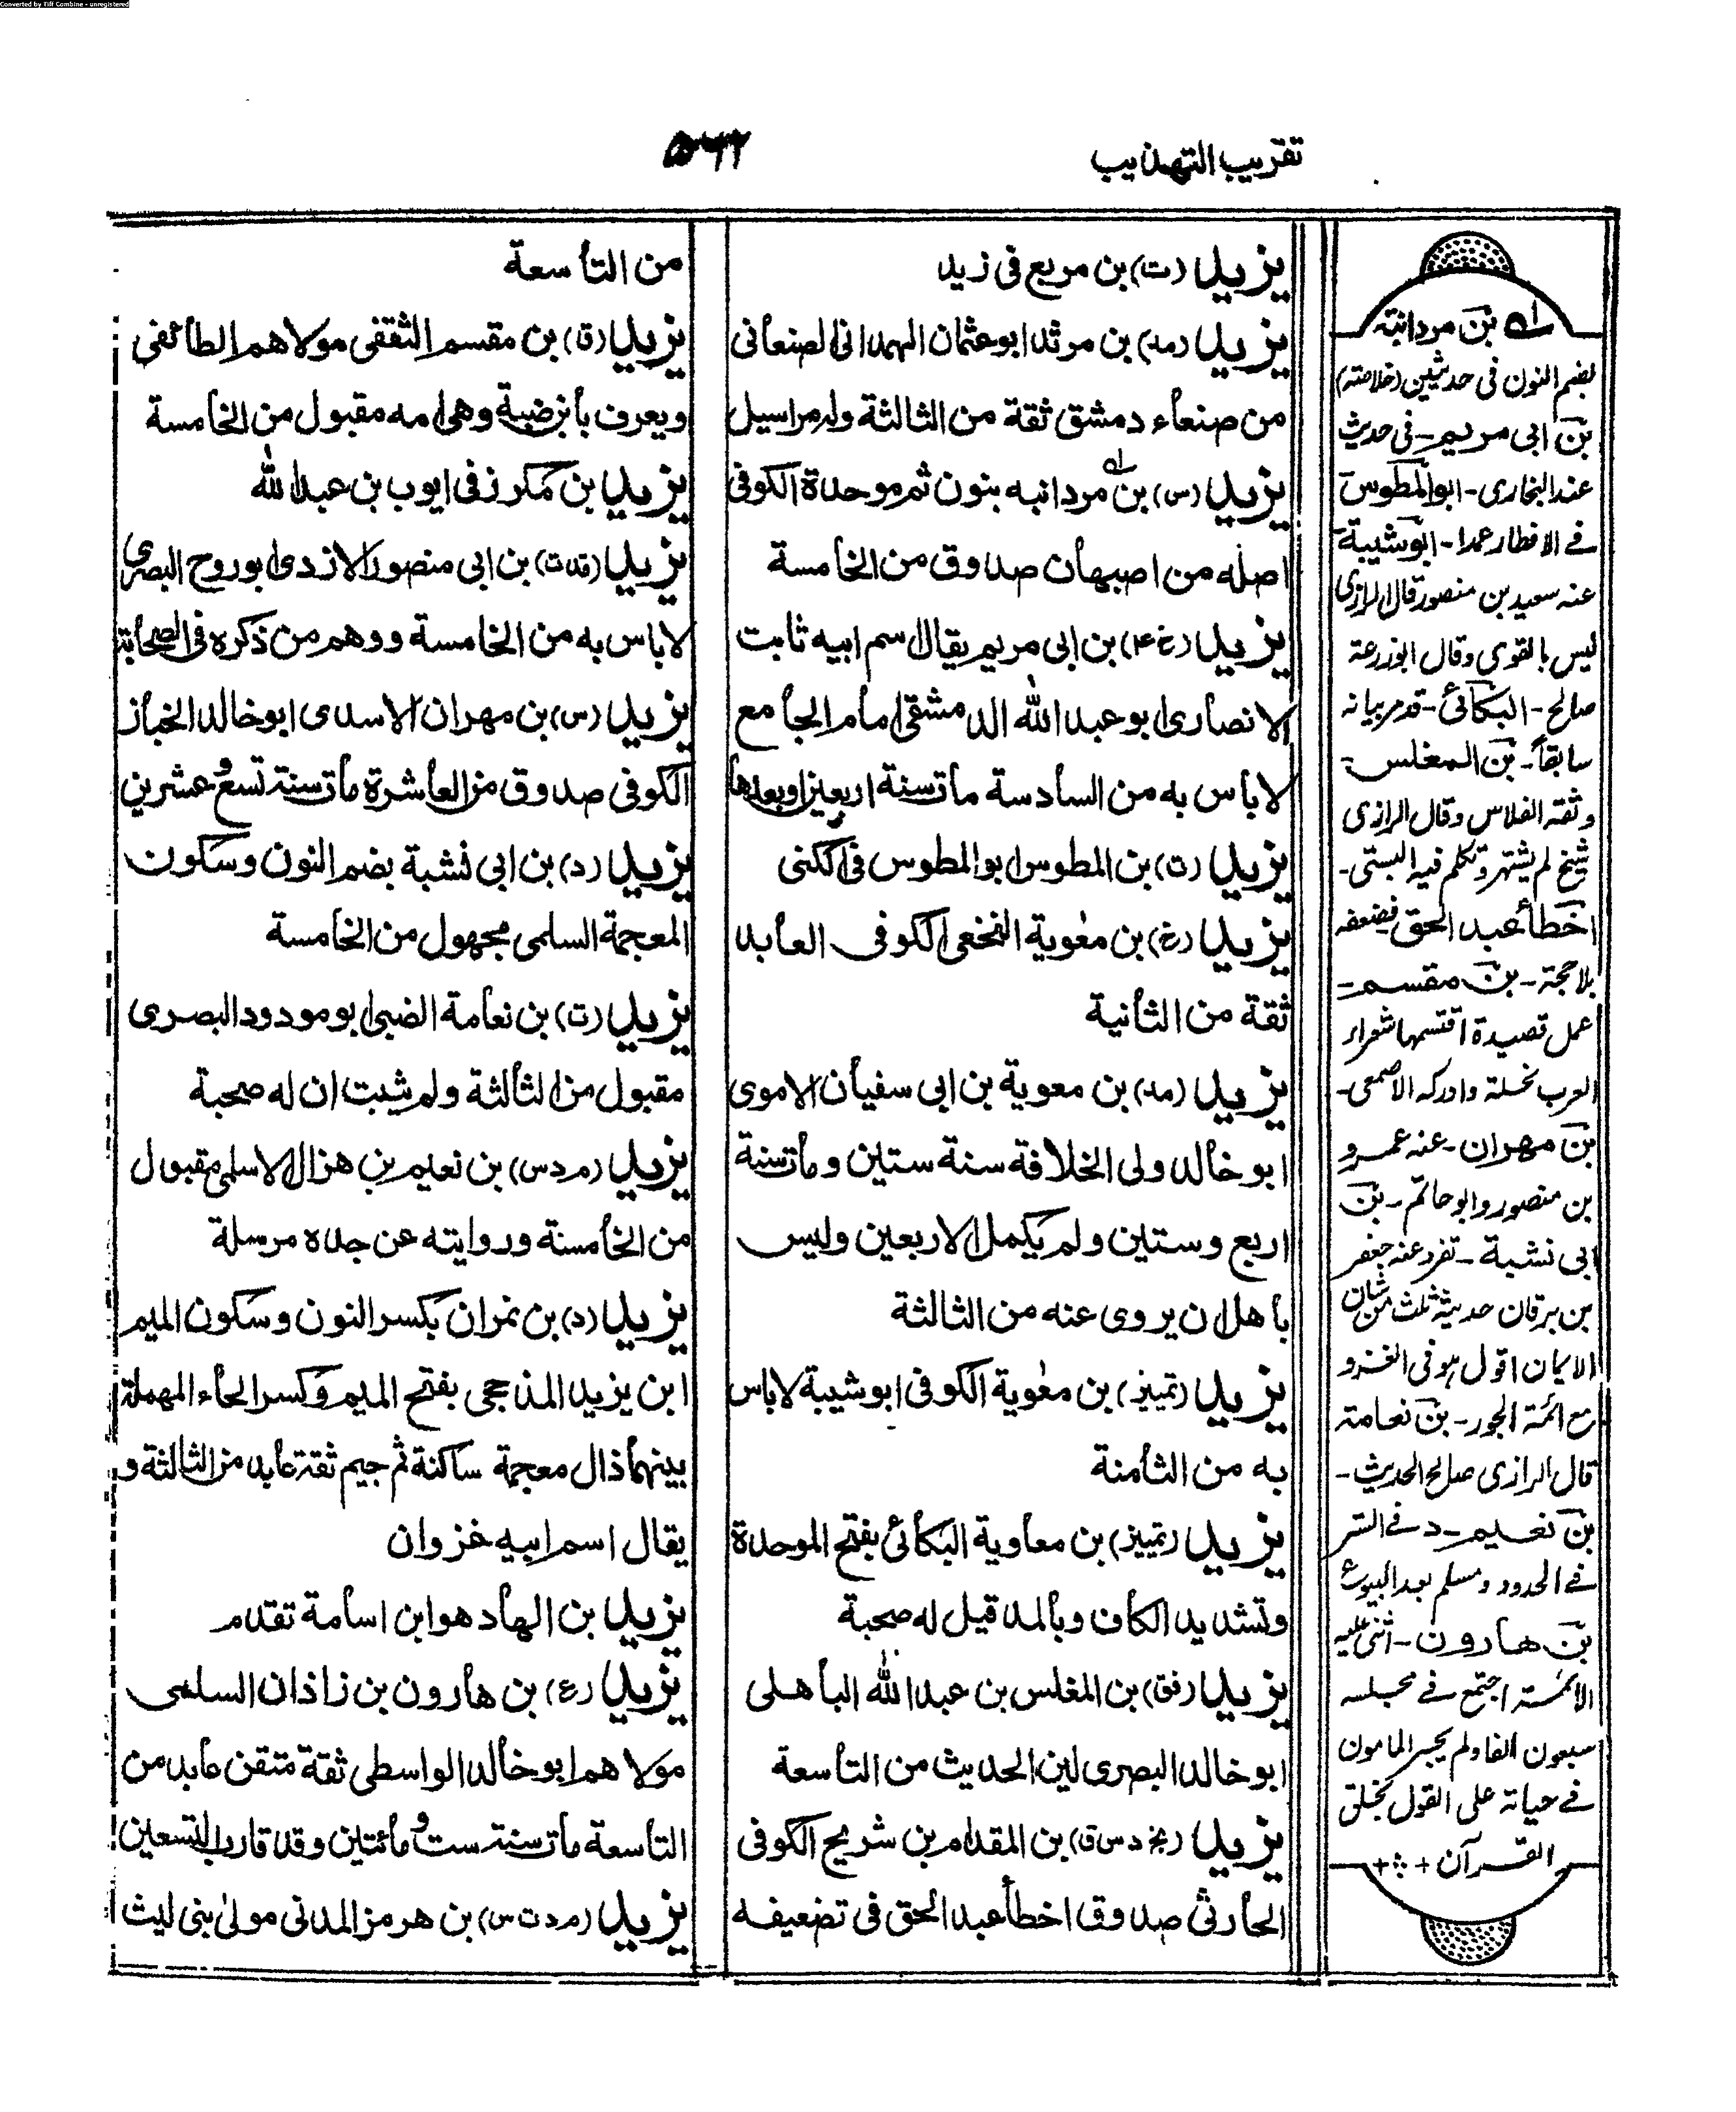 Converted by Tiff Combine - unregistered
تقريب التهذيب
٥٦٢
يزيد (ت) بن مربع فى زيد
يزيد (مد) بن مرثد ابو عثمان الهمدانى الصنعانى
من صنعاء دمشق ثقة من الثالثة وله مراسيل
يزيد (س) بن مردانبه بنون ثم موحدة الكوفى
اصله من اصبهان صدوق من الخامسة
يزيد (خ ۴) بن ابى مريم يقال اسم ابيه ثابت
الانصارى ابو عبد الله الدمشقى امام الجامع
لا باس به من السادسة مات سنة اربعين او بعدها
يزيد (ت) بن المطوس ابو المطوس فى الكنى
يزيد (خ) بن معٰوية النخعى الكوفى العابد
ثقة من الثانية
يزيد (مد) بن معوية بن ابى سفيان الاموى
ابو خالد ولى الخلافة سنة ستين ومات سنة
اربع وستين ولم يكمل الاربعين وليس
باهل ان يروى عنه من الثالثة
يزيد (تمييز) بن معٰوية الكوفى ابو شيبة لا باس
به من الثامنة
يزيد (تمييز) بن معاوية البكائى بفتح الموحدة
وتشديد الكاف وبالمد قيل له صحبة
يزيد (فق) بن المغلس بن عبد الله الباهلى
ابو خالد البصرى لين الحديث من التاسعة
يزيد (بخ د س ق) بن المقدام بن شريح الكوفى
الحارثى صدوق اخطأ عبد الحق فى تضعيفه
من التاسعة
يزيد (ق) بن مقسم الثقفى مولاهم الطائفى
ويعرف بابن ضبة وهى امه مقبول من الخامسة
يزيد بن مكرز فى ايوب بن عبد الله
يزيد (قد ت) بن ابى منصور الازدى ابو روح البصرى
لا باس به من الخامسة ووهم من ذكره فى الصحابة
يزيد (س) بن مهران الاسدى ابو خالد الخباز
الكوفى صدوق من العاشرة مات سنة تسع وعشرين
يزيد (د) بن ابى نشبة بضم النون وسكون
المعجمة السلمى مجهول من الخامسة
يزيد (ت) بن نعامة الضبى ابو مودود البصرى
مقبول من الثالثة ولم يثبت ان له صحبة
يزيد (م د س) بن نعيم بن هزال الاسلمى مقبول
من الخامسة وروايته عن جده مرسلة
يزيد (د) بن نمران بكسر النون وسكون الميم
ابن يزيد المذحجى بفتح الميم وكسر الحاء المهملة
بينهما ذال معجمة ساكنة ثم جيم ثقة عابد من الثالثة و
يقال اسم ابيه غزوان
يزيد بن الهاد هو ابن اسامة تقدم
يزيد (ع) بن هارون بن زاذان السلمى
مولاهم ابو خالد الواسطى ثقة متقن عابد من
التاسعة مات سنة ست ومائتين وقد قارب التسعين
يزيد (م د ت س) بن هرمز المدنى مولىٰ بنى ليث
بن مردانبة
بضم النون فى حديثين (خلاصة)
بن ابى مريم - فى حديث
عند البخارى - ابو المطوس
فے الافطار عمدا - ابو شيبة
عنه سعيد بن منصور قال الرازى
ليس بالقوى وقال ابو زرعة
صالح - البكائى - قد مر بيانه
سابقاً - بن المغلس -
وثقه الفلاس وقال الرازى
شيخ لم يشتهر وتكلم فيه البستى -
اخطأ عبد الحق فضعفه
بلا حجة - بن مقسم -
عمل قصيدة اقتسمها شعراء
العرب نحلة وادركه الاصمعى -
بن مهران - عنه عمرو
بن منصور وابو حاتم - بن
ابى نشبة - تفرد عنه جعفر
بن برقان حديثه ثلث من شان
الايمان اقول هو فى الغزو
مع ائمة الجور - بن نعامة
قال الرازى صالح الحديث -
بن نعيم - د فے الستر
فے الحدود ومسلم بعد البيوع
بن هارون - اثنى عليه
الائمة اجتمع فے مجلسه
سبعون الفا ولم يجسر المامون
فے حياته على القول بخلق
القرآن